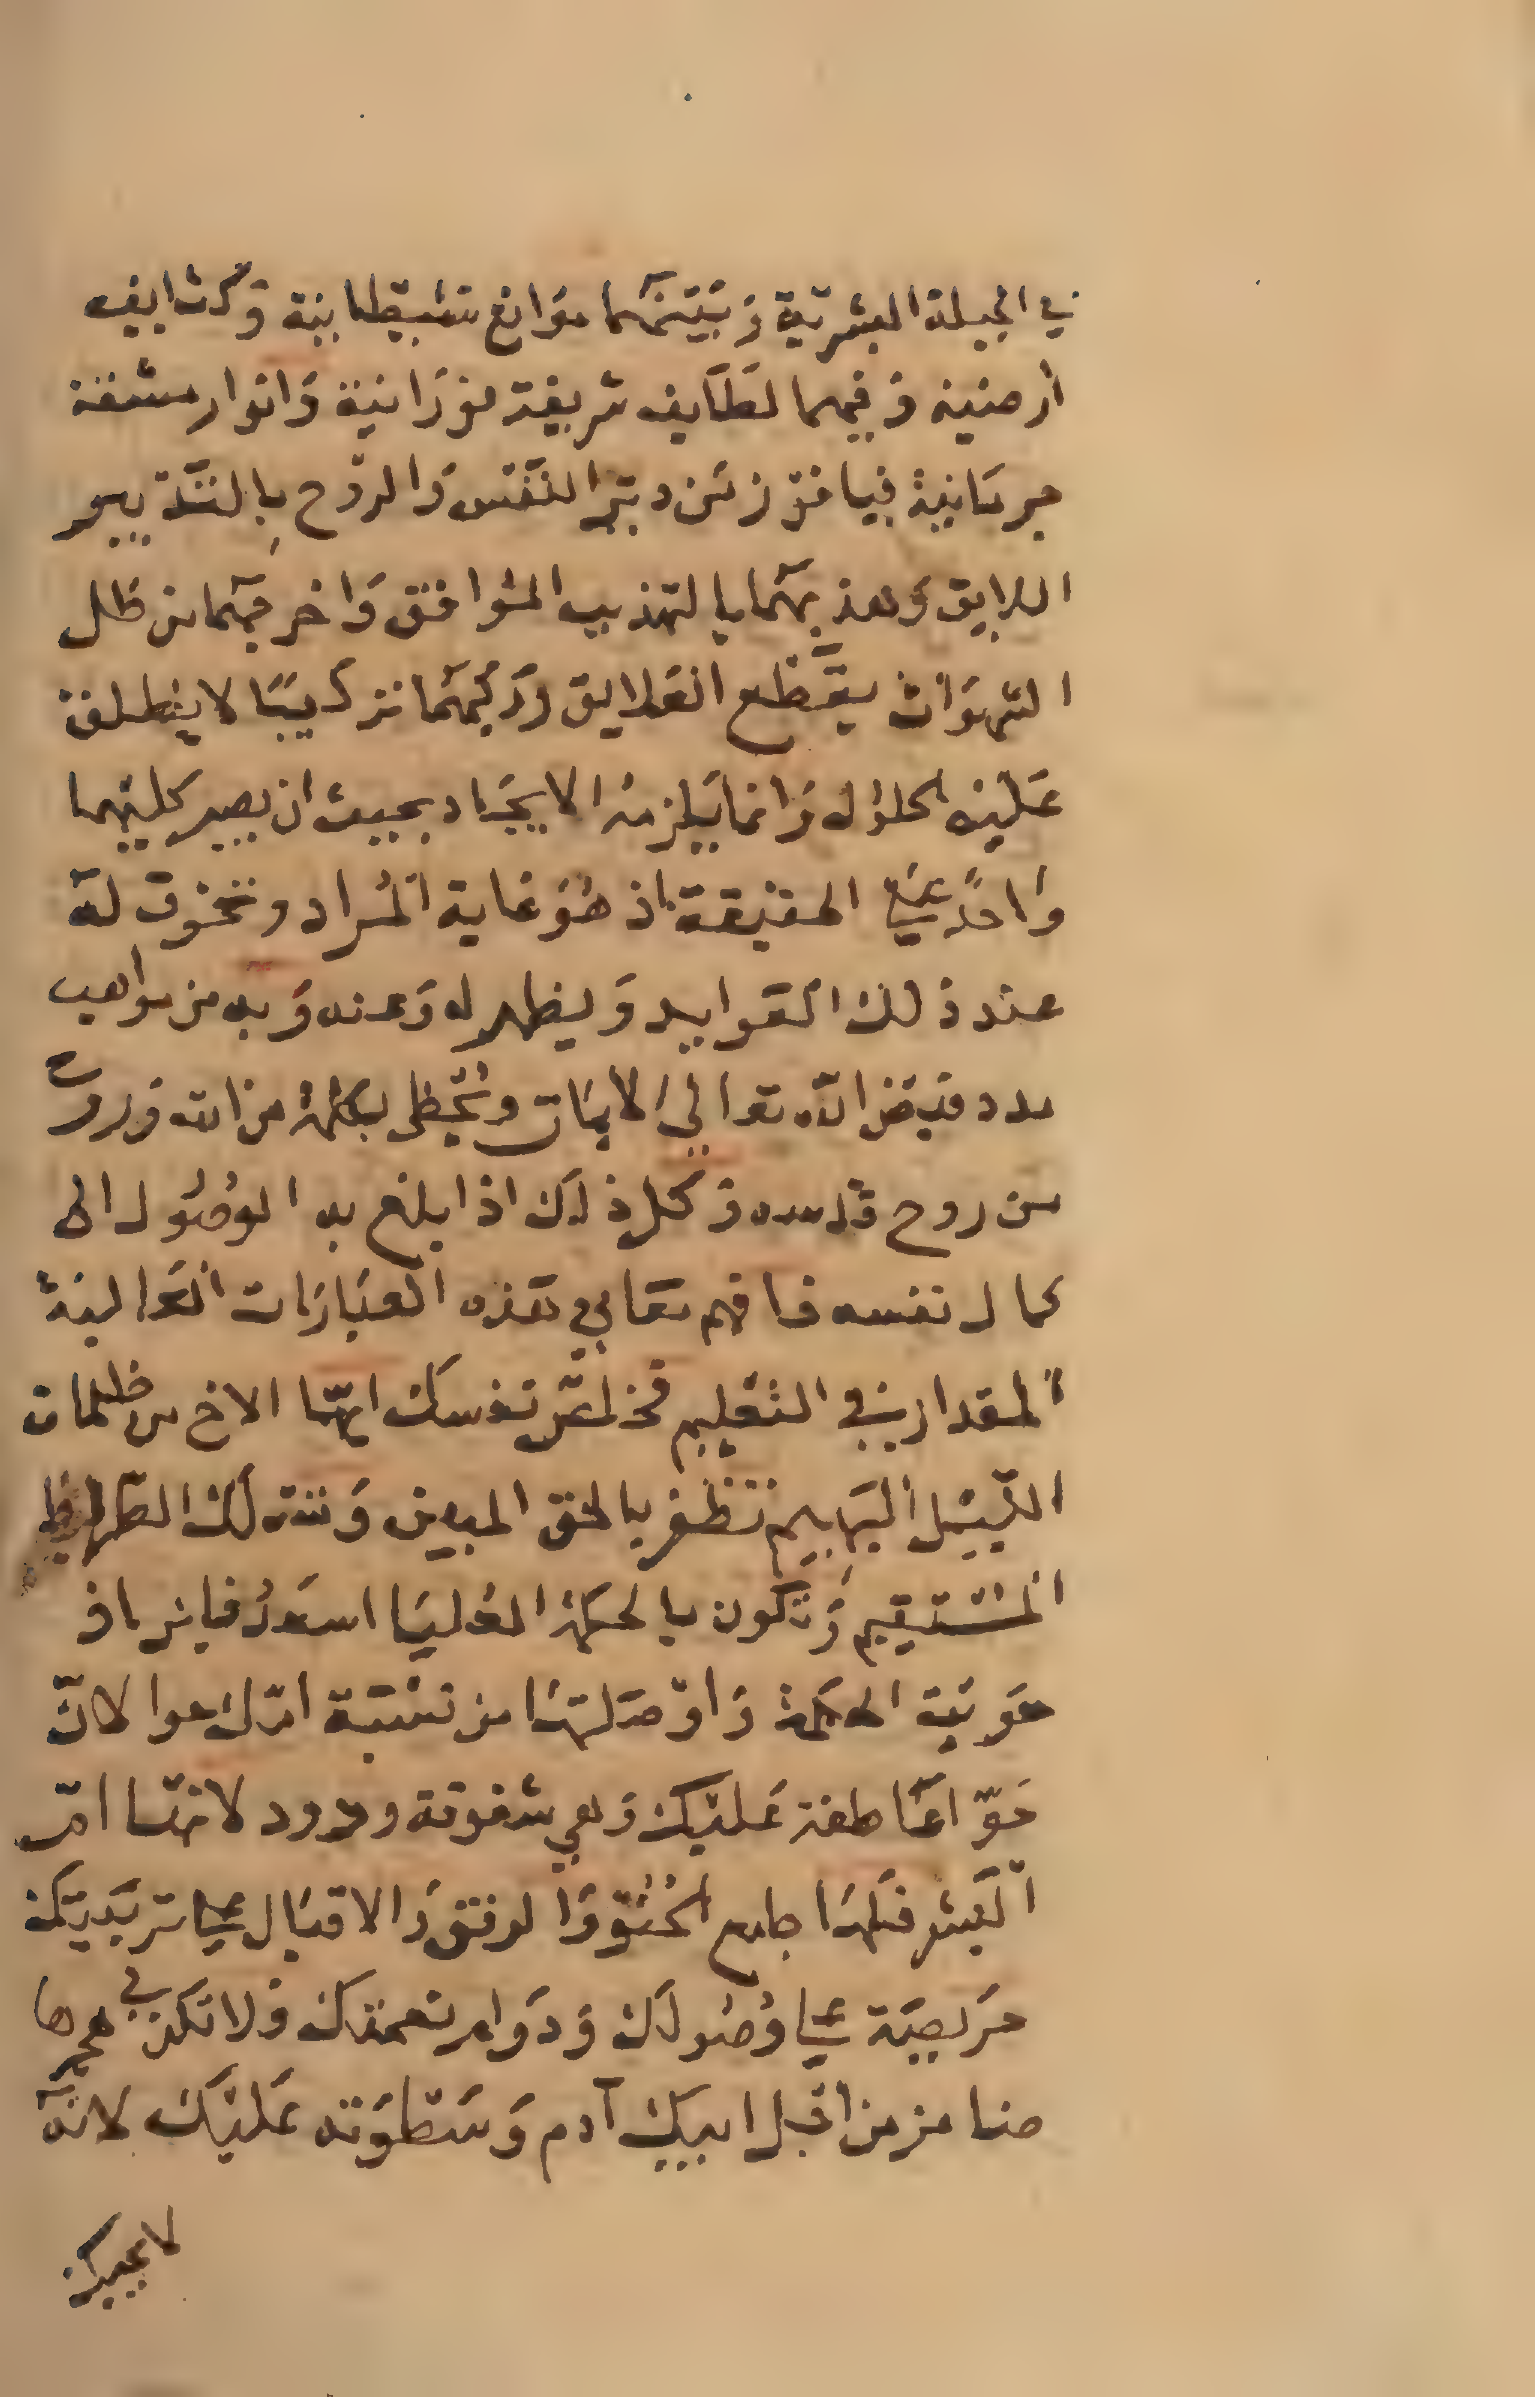 في الجبلة البشرية وَبَيَنهما موَانع شيطانية وَكثايف
أرضية وَفيهما لطَايف شريفة نورَانية وَانوار مشفة
جرمَانية فيا فوز مَن دبّر النَفس وَالروّح بِالتَدّبير
اللايق وَهذبهمَا بالتهذيب المُوافق وَاخرجهَما من ظلل
الشهوَات بقطع العَلايق وَركبهمَا تركيبًا لا ينطلق
عَليْه الحلول وَانما يَلزمه الايجَاد بحيث ان يصير كليهما
وَاحدً عَلي الحقيقة اذ هُوَ غاية المُراد وتخرق له
عند ذلك العَوايد وَيظهر له وَعنه وَبه من مواهب
مدد فيَض الله تعالي الايَات وَيُحظى بكلمة من الله وَروح
من روح قدسه وَكل ذلك اذا بلغ به الوصُول الى
كمال نفسه فافهم معَاني هَذه العبَارَات العَالية
المقدار في التعْليم فخلصّ نفسك ايهّا الاخ من ظلمات
الليْل البَهيم تظفر بالحق المبين وَتترك الصّراط
المُسْتقيم وَتكون بالحكمة العُليَا اسعَدُ فايز باذ
هَويَة الحكمَة وَاوّصَلتهَا من نسْبَة امّك حوا لانّ
حَوّا عَاطفة عَليْك وَهي شفوقة وَدود لانهّا امّ
البَشر فَلهَا طبع الحُنُوّ وَالرفق وَالاقبَال علي تربَيتك
حرَيصَة علي وُصُولك وَدوَام نعمتك وَلا تكن في هجرها
ضامن من اجل ابيك آدم وَسَطوَته عَليْك لانهّ
لا يحبك